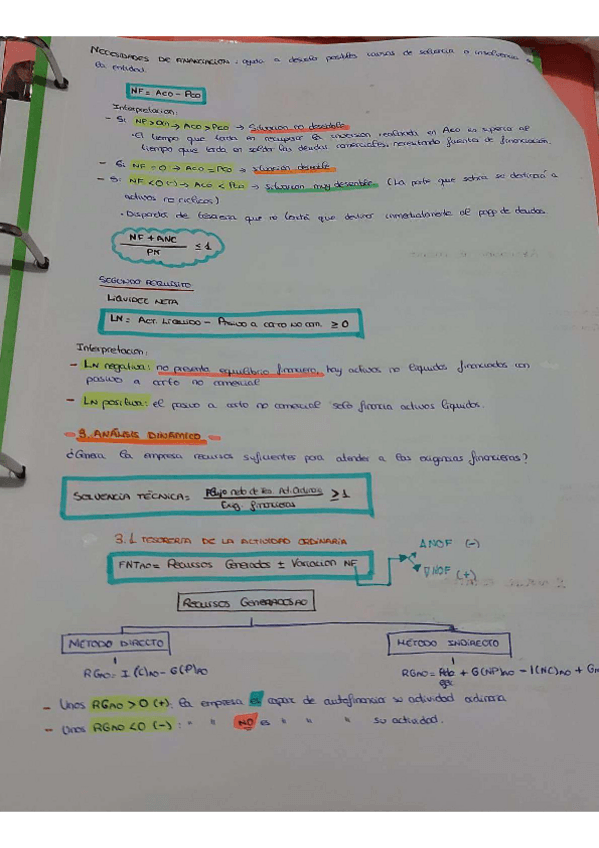 NECESIDADES DE FINANCIACIÓN: ayuda a detectar posibles causas de solvencia o insolvencia
la entidad.
NF = ACO - PCO
Interpretación:
- Si NF > 0(+) → ACO > PCO → Situación no deseable
• El tiempo que tarda en recuperar la inversión realizada en ACO es superior al
tiempo que tarda en saldar las deudas comerciales, necesitando fuentes de financiación.
- Si NF = 0 → ACO = PCO → situación deseable
- Si NF < 0 (-) → ACO < PCO → Situación muy deseable (La parte que sobra se destinará a
activos no cíclicos)
• Dispondrá de tesorería que no tendrá que destinar inmediatamente al pago de deudas.
NF + ANC / PK ≤ 1
SEGUNDO REQUISITO
LIQUIDEZ NETA
LN = Act. Líquido - Pasivo a corto no com. ≥ 0
Interpretación:
- LN negativa: no presenta equilibrio financiero, hay activos no líquidos financiados con
pasivo a corto no comercial
- LN positiva: el pasivo a corto no comercial solo financia activos líquidos.
3. ANÁLISIS DINÁMICO
¿Genera la empresa recursos suficientes para atender a las exigencias financieras?
SOLVENCIA TÉCNICA = Flujo neto de Tes. Act. Ordinaria / Exig. financieras ≥ 1
3.1 TESORERÍA DE LA ACTIVIDAD ORDINARIA
FNTAO = Recursos Generados ± Variación NF
ΔNOF (-)
∇NOF (+)
RECURSOS GENERADOS AO
MÉTODO DIRECTO
MÉTODO INDIRECTO
RGAO = I(C)AO - G(P)AO
RGAO = Rtdo ejer + G(NP)AO - I(NC)AO + G
- Unos RGAO > 0 (+): la empresa es capaz de autofinanciar su actividad ordinaria
- Unos RGAO < 0 (-): " " NO es " " " su actividad.